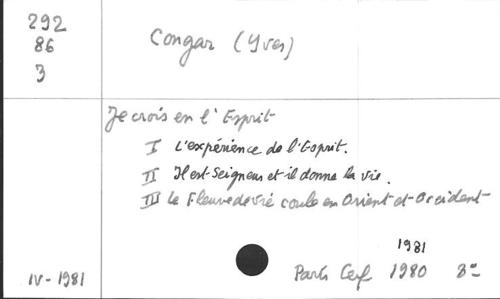 292
86
3
Congar (Yves)
Je crois en l'Esprit
I L'expérience de l'Esprit.
II Il est Seigneur et il donne la vie.
III Le Fleuve de vie coule en Orient et Occident
1981
IV - 1981
Paris Cerf 1980 3e